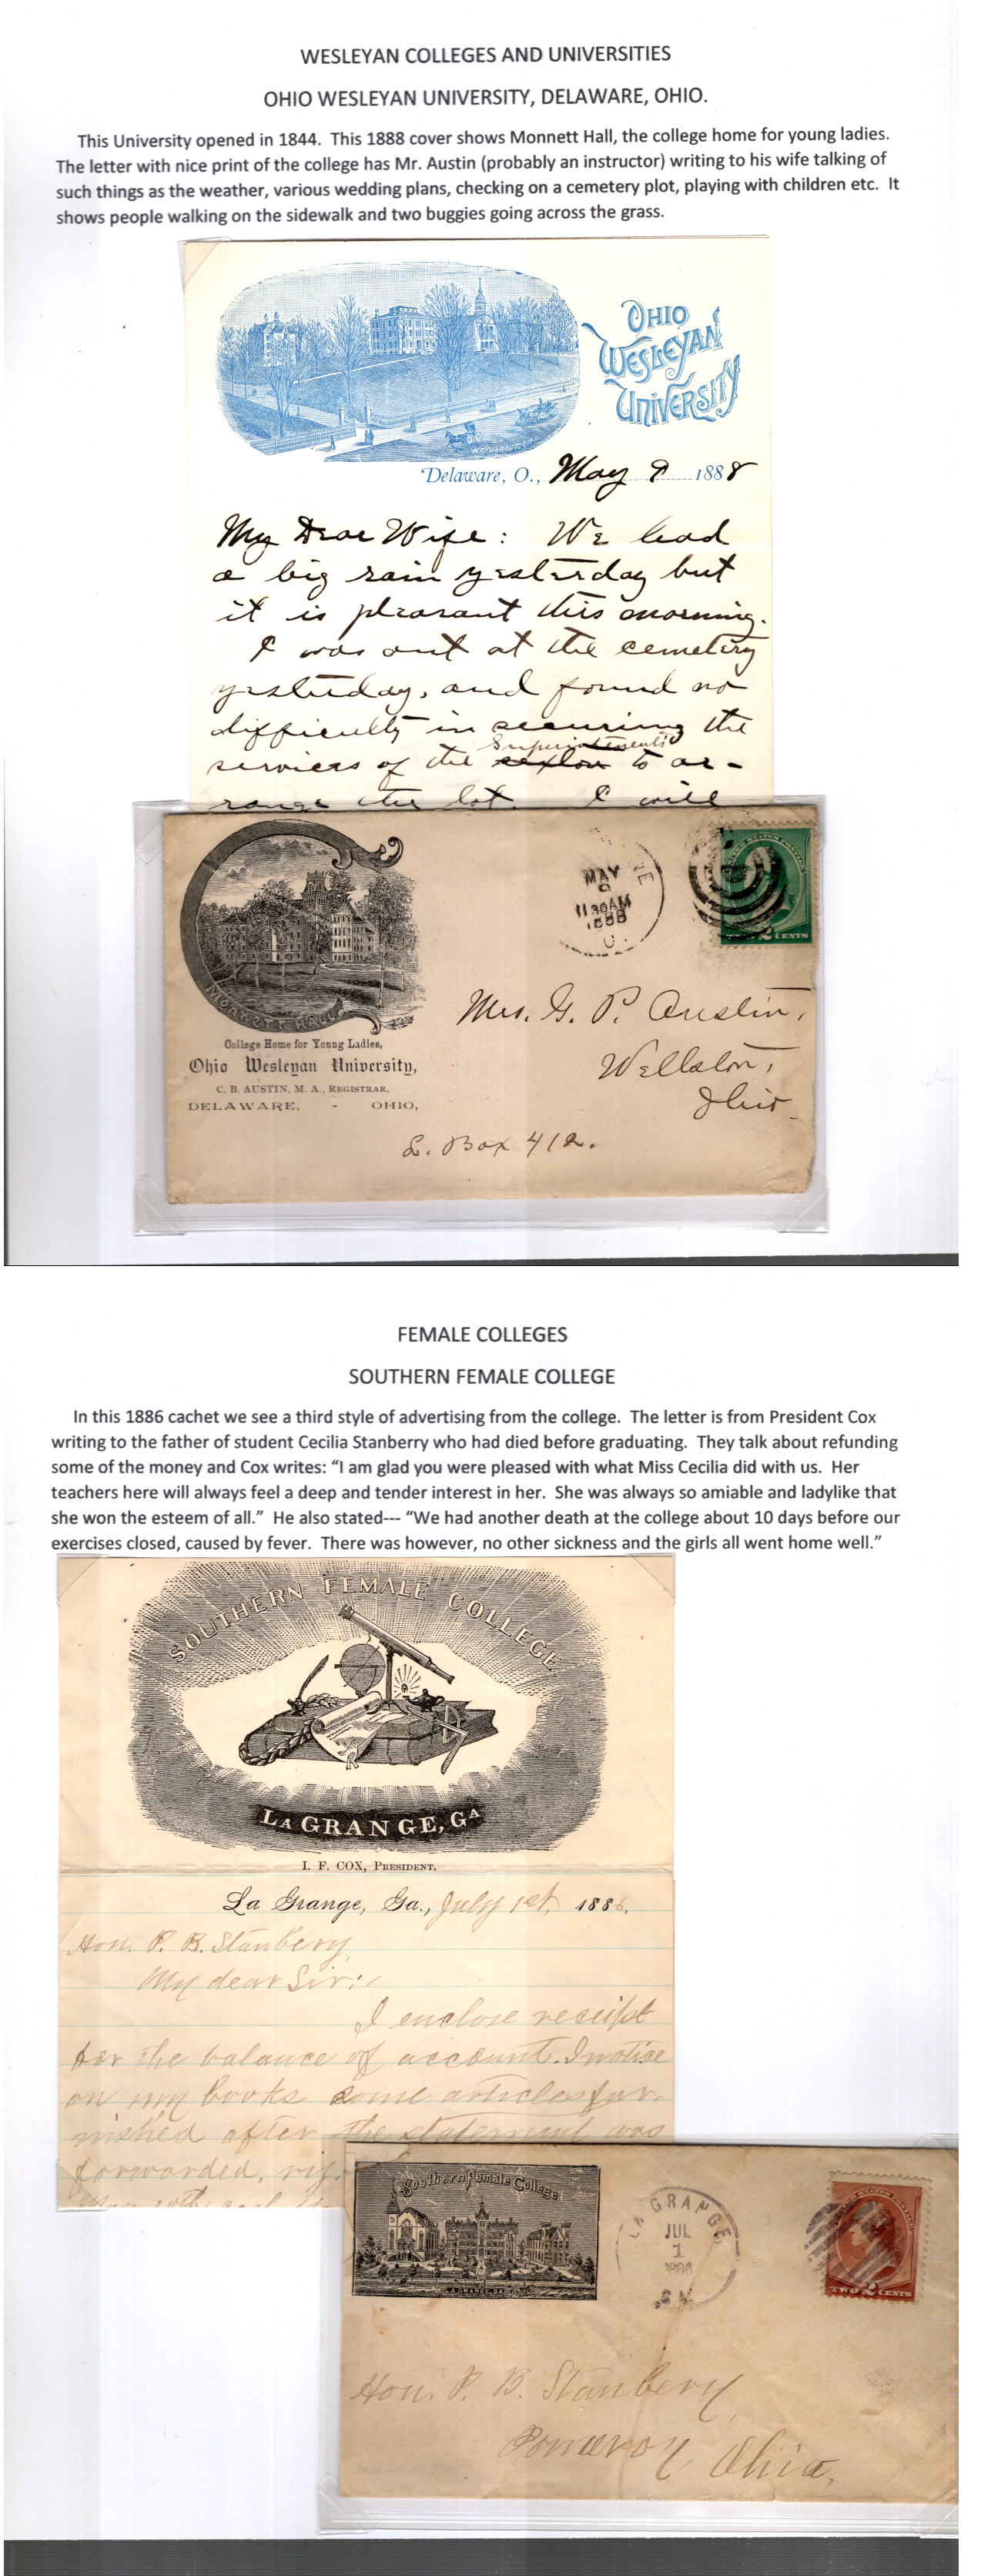 WESLEYAN COLLEGES AND UNIVERSITIES
OHIO WESLEYAN UNIVERSITY, DELAWARE, OHIO.
This University opened in 1844. This 1888 cover shows Monnett Hall, the college home for young ladies.
The letter with nice print of the college has Mr. Austin (probably an instructor) writing to his wife talking of
such things as the weather, various wedding plans, checking on a cemetery plot, playing with children etc. It
shows people walking on the sidewalk and two buggies going across the grass.
OHIO
WESLEYAN
UNIVERSITY
Delaware, O., May 9 1888
My Dear Wife: We had
a big rain yesterday but
it is pleasant this morning.
I was out at the cemetery
yesterday, and found no
difficulty in securing the
Superintendent
services of the sexton to ar-
range the lot. I will
MAY
9
11 30 AM
1888
O.
UNITED STATES POSTAGE
TWO 2 CENTS
MONNETT HALL
College Home for Young Ladies,
Ohio Wesleyan University,
C. B. AUSTIN, M. A., REGISTRAR,
DELAWARE, - OHIO.
Mrs. G. P. Austin,
Wellston,
Ohio
L. Box 412.
FEMALE COLLEGES
SOUTHERN FEMALE COLLEGE
In this 1886 cachet we see a third style of advertising from the college. The letter is from President Cox
writing to the father of student Cecilia Stanberry who had died before graduating. They talk about refunding
some of the money and Cox writes: “I am glad you were pleased with what Miss Cecilia did with us. Her
teachers here will always feel a deep and tender interest in her. She was always so amiable and ladylike that
she won the esteem of all.” He also stated--- “We had another death at the college about 10 days before our
exercises closed, caused by fever. There was however, no other sickness and the girls all went home well.”
SOUTHERN FEMALE COLLEGE
LA GRANGE, GA
I. F. COX, PRESIDENT.
La Grange, Ga., July 1st, 1886.
Hon. P. B. Stanbery,
My dear Sir:
I enclose receipt
for the balance of account. I notice
on my books some articles fur-
nished after the statement was
forwarded,
Southern Female College
LA GRANGE, GA.
LA GRANGE
JUL
1
1886
GA.
TWO 2 CENTS
Hon. P. B. Stanbery,
Pomeroy, Ohio.